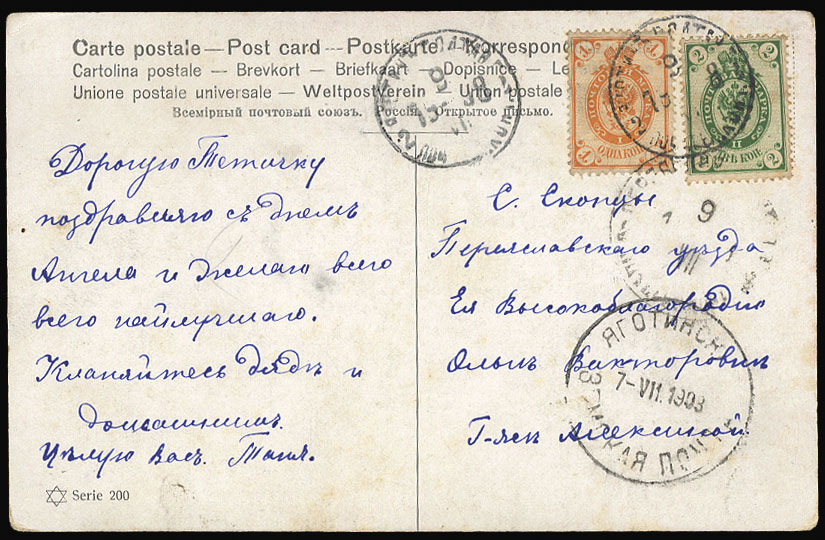 Carte postale — Post card — Postkarte — Korrespond
Cartolina postale — Brevkort — Briefkaart — Dopisnice — Le
Unione postale universale — Weltpostverein — Union postale
Всемірный почтовый союзъ. Россія. Открытое письмо.
1 1
ОДНА КОП.
1 1
2 2
ПОЧТОВАЯ МАРКА
II
ДВѢ КОП.
2 2
Дорогую Тетичку
поздравляю съ днемъ
Ангела и желаю всего
всего наилучшаго.
Кланяйтесь дядѣ и
домашнимъ.
Цѣлую Васъ. Таня.
С. Скопцы
Переяславскаго уѣзда
Ея Высокоблагородію
Ольгѣ Викторовнѣ
Г-жѣ Алексиной
9
VII
ЯГОТИНСК
7-VII.1908
ЗЕМСКАЯ ПОЧТА
Serie 200